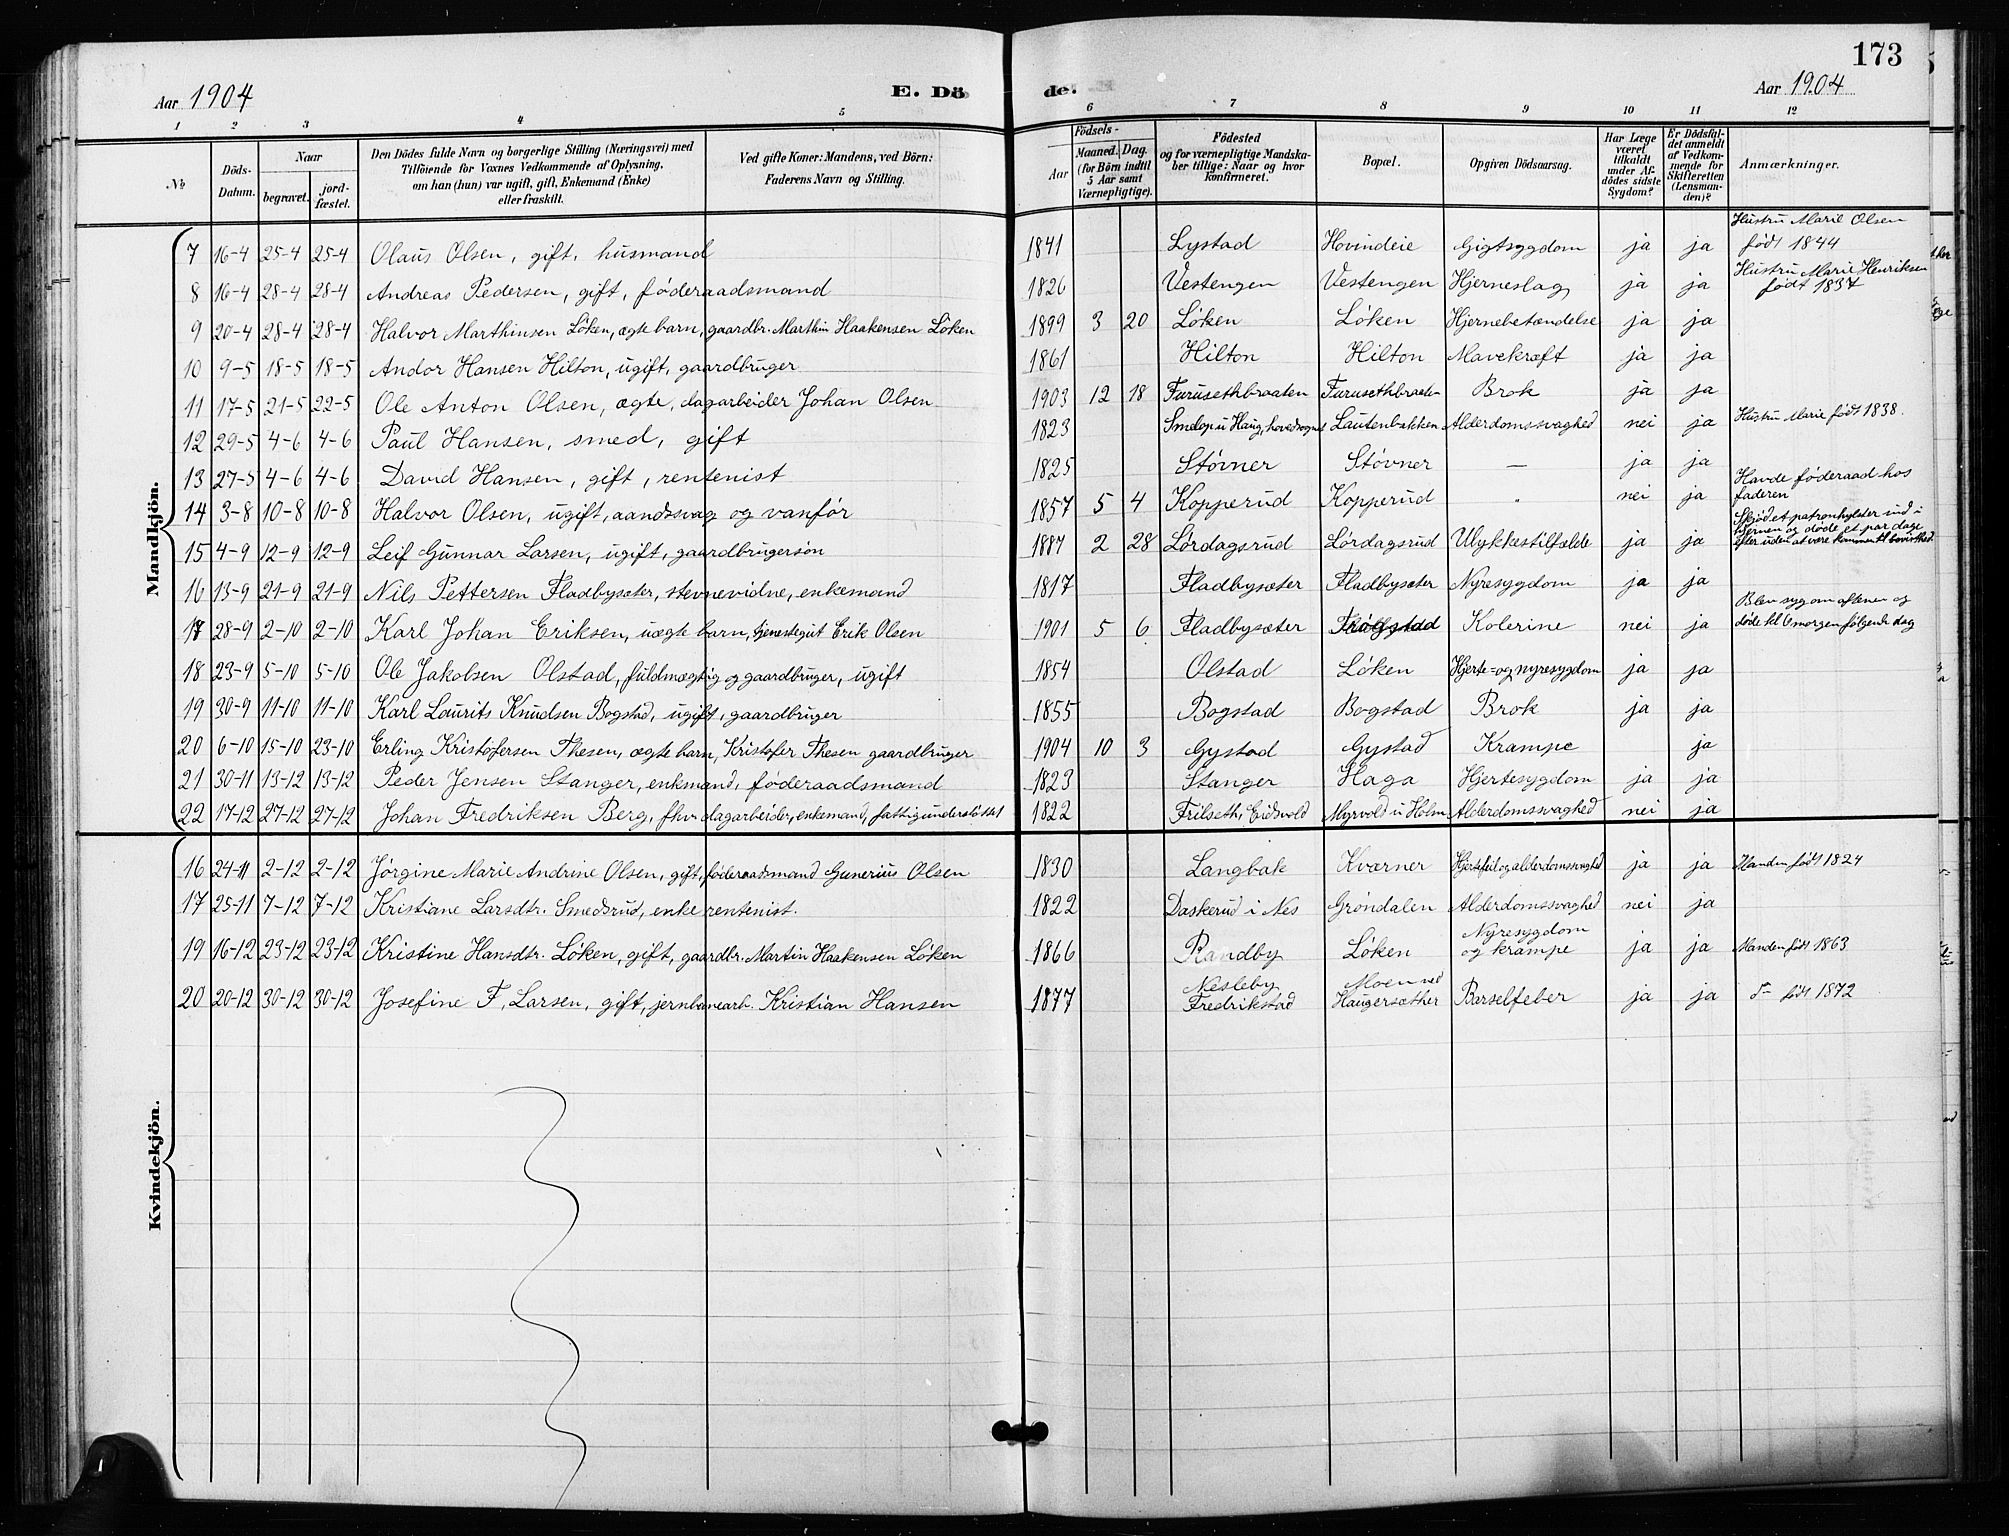 173
Aar 1904
E. Döde.
Aar 1904
1 2 3 4 5 6 7 8 9 10 11 12
No
Döds-Datum.
Naar
begravet.
jordfæstet.
Den Dödes fulde Navn og borgerlige Stilling (Næringsvei) med Tilföiende for Voxnes Vedkommende af Oplysning, om han (hun) var ugift, gift, Enkemand (Enke) eller fraskilt.
Ved gifte Koner: Mandens, ved Börn: Faderens Navn og Stilling.
Födsels-
Aar
Maaned. Dag.
(for Börn indtil 5 Aar samt Værnepligtige).
Födested og for værnepligtige Mandskaber tillige: Naar og hvor konfirmeret.
Bopæl.
Opgiven Dödsaarsag.
Har Læge været tilkaldt under Afdödes sidste Sygdom?
Er Dödsfaldet anmeldt af Vedkommende for Skifteretten (Lensmanden)?
Anmærkninger.
Mandkjön.
7 16-4 25-4 25-4 Olaus Olsen, gift, husmand 1841 Lystad Hovindeie Gigtsygdom ja ja Hustru Marie Olsen født 1844
8 16-4 28-4 28-4 Andreas Pedersen, gift, føderaadsmand 1826 Vestengen Vestengen Hjerneslag ja ja Hustru Marie Henriksen født 1837
9 20-4 28-4 28-4 Halvor Marthinsen Løken, ægte barn, gaardbr. Marthin Haakensen Løken 1899 3 20 Løken Løken Hjernebetændelse ja ja
10 9-5 18-5 18-5 Andor Hansen Hilton, ugift, gaardbruger 1861 Hilton Hilton Mavekræft ja ja
11 17-5 21-5 22-5 Ole Anton Olsen, ægte, dagarbeider Johan Olsen 1903 12 18 Furusethbraaten Furusethbraaten Brok ja ja
12 29-5 4-6 4-6 Paul Hansen, smed, gift 1823 u Haug, hovedsognet Lautenbakken Alderdomssvaghed nei ja Hustru Marie født 1838.
13 27-5 4-6 4-6 David Hansen, gift, rentenist 1825 Støvner Støvner — ja ja
14 3-8 10-8 10-8 Halvor Olsen, ugift, aandssvag og vanfør 1857 5 4 Kopperud Kopperud " nei ja Havde føderaad hos faderen
15 4-9 12-9 12-9 Leif Gunnar Larsen, ugift, gaardbrugersøn 1887 2 28 Lørdagsrud Lørdagsrud Ulykkestilfælde ja ja Skjød et patronhylster ind i hjernen og døde et par dage efter uden at være kommen til bevisthed
16 13-9 21-9 21-9 Nils Pettersen Fladbysæter, stevnevidne, enkemand 1817 Fladbysæter Fladbysæter Nyresygdom ja ja
17 28-9 2-10 2-10 Karl Johan Eriksen, uægte barn, tjenestegut Erik Olsen 1901 5 6 Fladbysæter Kolerine nei ja Blev syg om aftenen og døde kl 6 morgen følgende dag
18 23-9 5-10 5-10 Ole Jakobsen Olstad, fuldmægtig og gaardbruger, ugift 1854 Olstad Løken Hjerte- og nyresygdom ja ja
19 30-9 11-10 11-10 Karl Laurits Knudsen Bogstad, ugift, gaardbruger 1855 Bogstad Bogstad Brok ja ja
20 6-10 15-10 23-10 Erling Kristofersen Thesen, ægte barn, Kristofer Thesen gaardbruger 1904 10 3 Gystad Gystad Krampe ja
21 30-11 13-12 13-12 Peder Jensen Stanger, enkmand, føderaadsmand 1823 Stanger Haga Hjertesygdom ja ja
22 17-12 27-12 27-12 Johan Fredriksen Berg, fhv. dagarbeider, enkemand, fattigunderstøttet 1822 Frilseth, Eidsvold Myrvold u Holm Alderdomssvaghed nei ja
Kvindekjön.
16 24-11 2-12 2-12 Jørgine Marie Andrine Olsen, gift, føderaadsmand Gunerius Olsen 1830 Langbak Kværner Hjertefeil og alderdomssvaghed ja ja Manden født 1824
17 25-11 7-12 7-12 Kristiane Larsdtr. Smedsrud, enke rentenist. 1822 Daskerud i Nes Grøndalen Alderdomssvaghed nei ja
19 16-12 23-12 23-12 Kristine Hansdtr. Løken, gift, gaardbr. Martin Haakensen Løken 1866 Randby Løken Nyresygdom og krampe ja ja Manden født 1863
20 20-12 30-12 30-12 Josefine F. Larsen, gift, jernbanearb. Kristian Hansen 1877 Nesleby Fredrikstad Moen ved Haugersæther Barselfeber ja ja født 1872